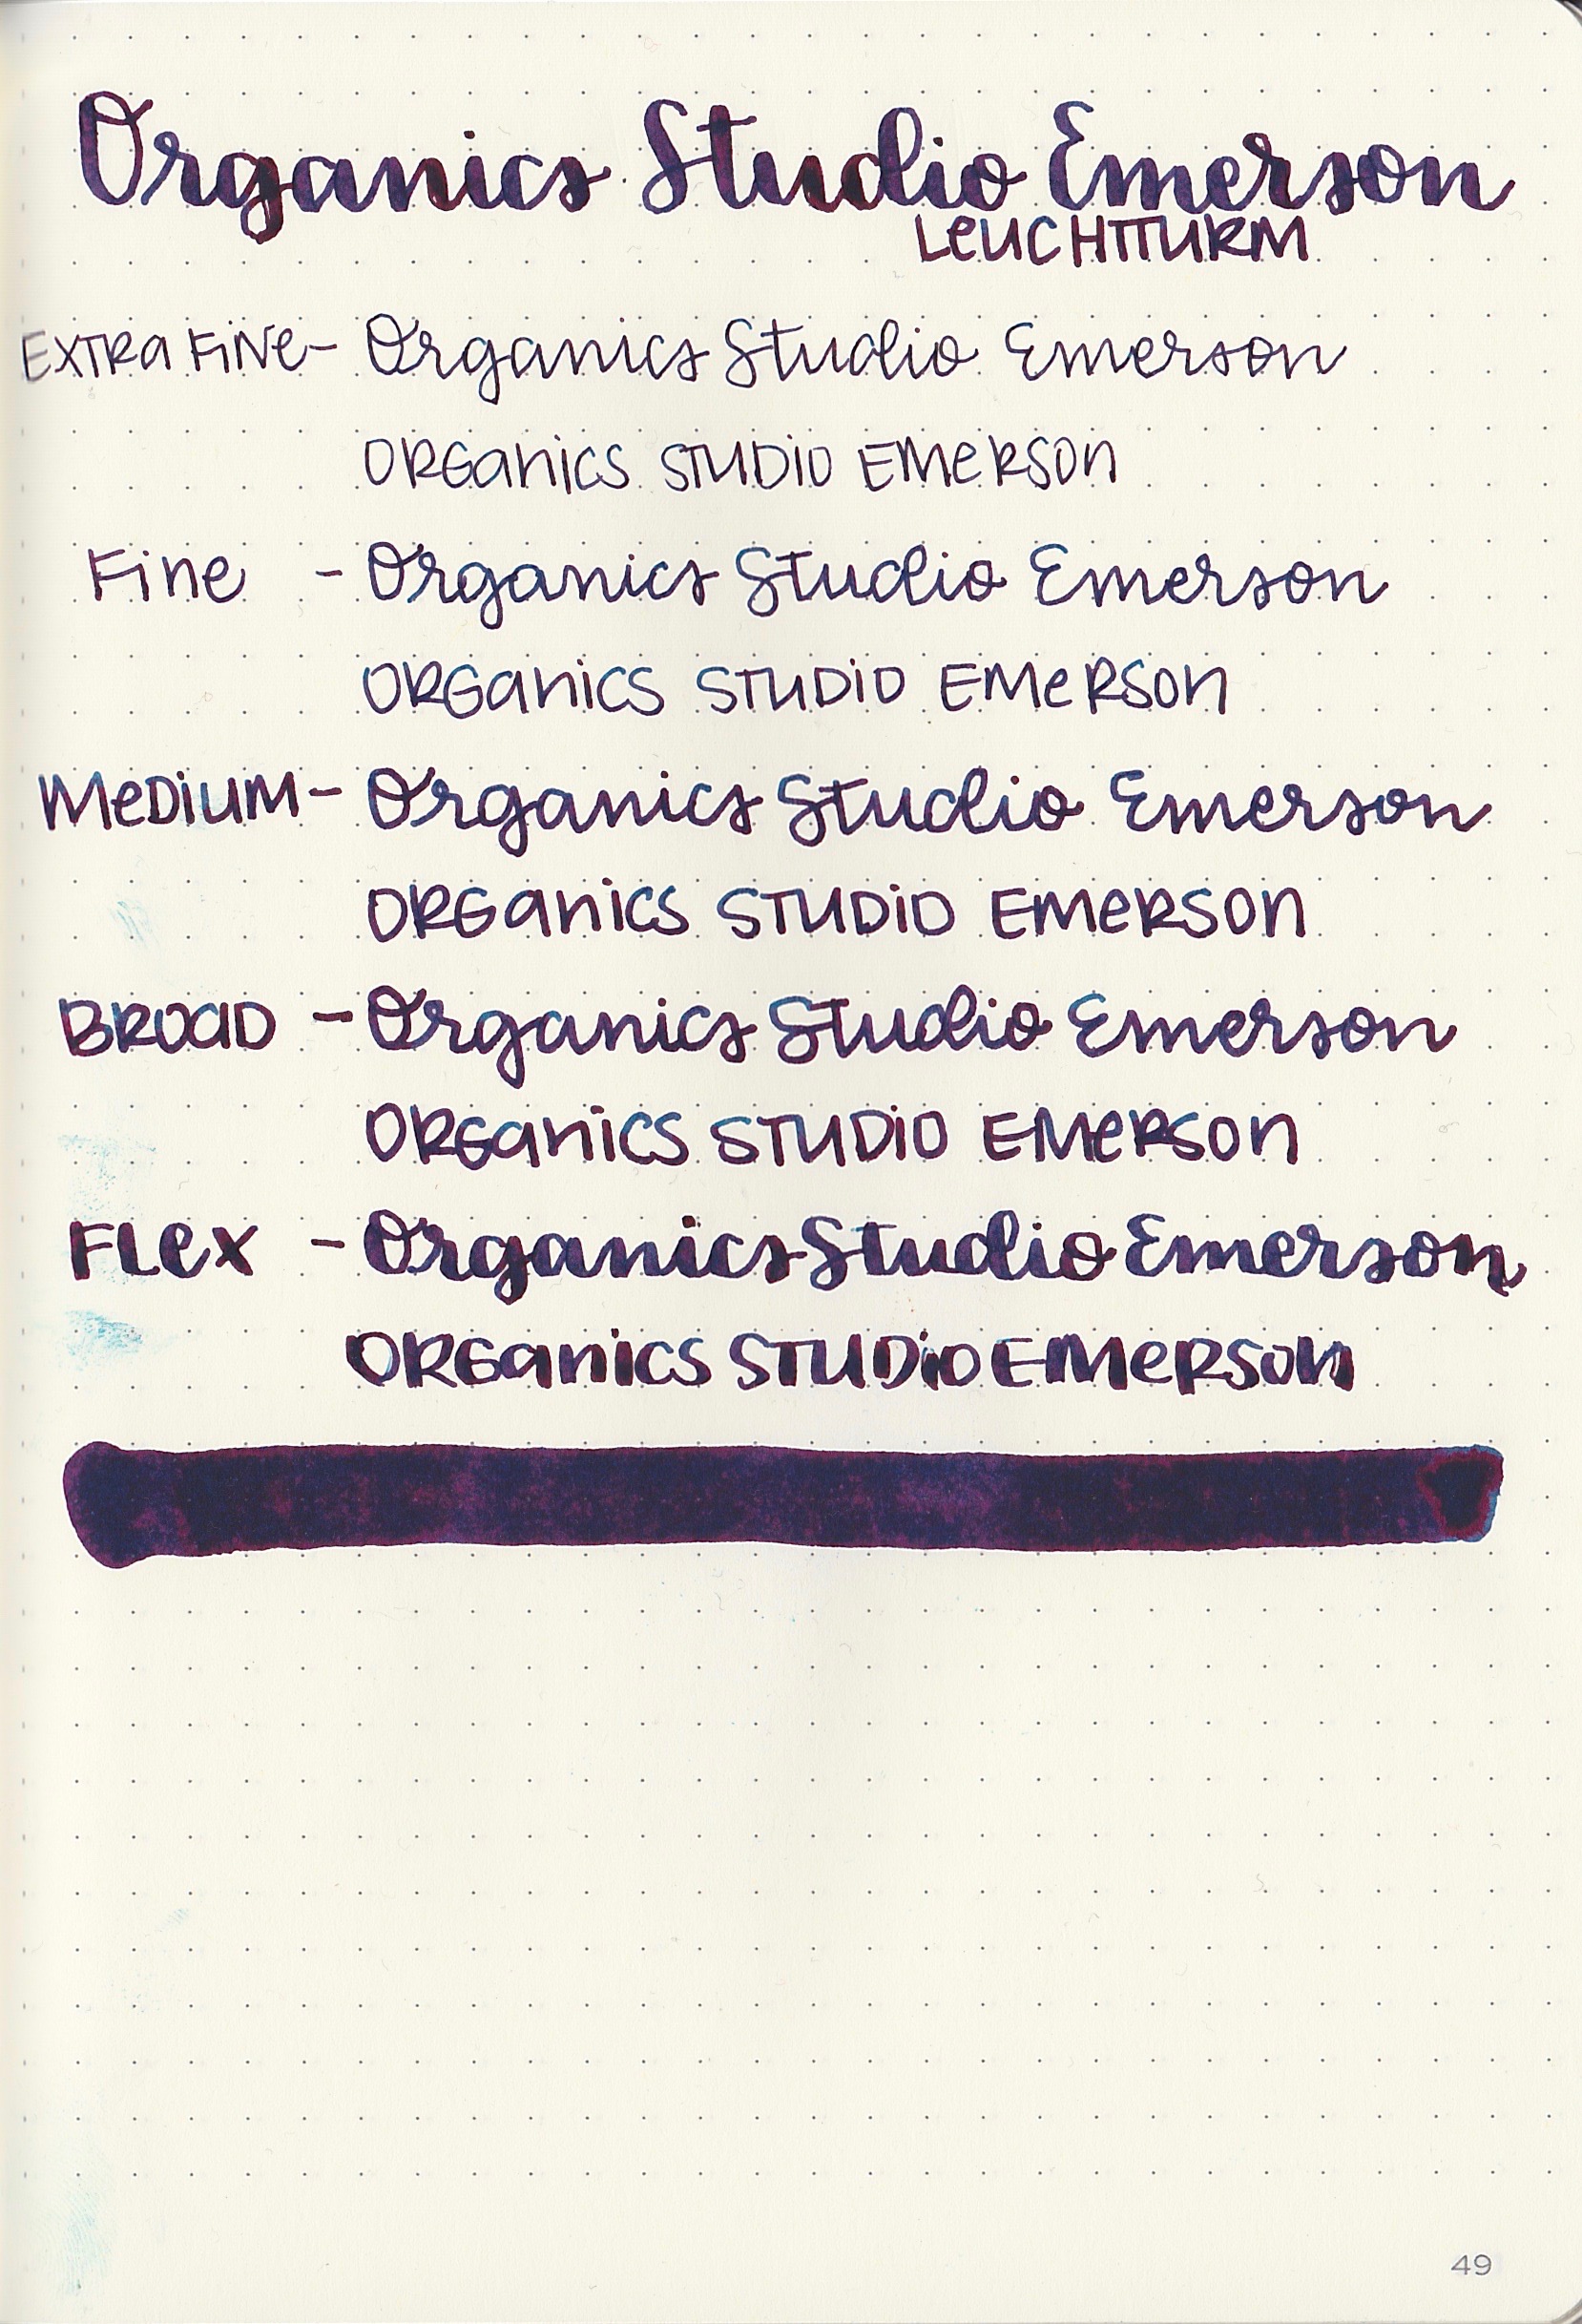 Organics Studio Emerson
LEUCHTTURM
EXTRA FINE - Organics Studio Emerson
ORGANICS STUDIO EMERSON
Fine - Organics Studio Emerson
ORGANICS STUDIO EMERSON
MEDIUM - Organics Studio Emerson
ORGANICS STUDIO EMERSON
BROAD - Organics Studio Emerson
ORGANICS STUDIO EMERSON
FLEX - Organics Studio Emerson
ORGANICS STUDIO EMERSON
49